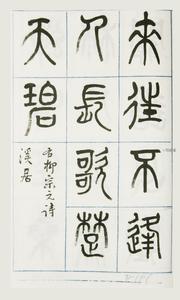 来往不逢
人長歌楚
天碧
右柳宗元詩
溪居